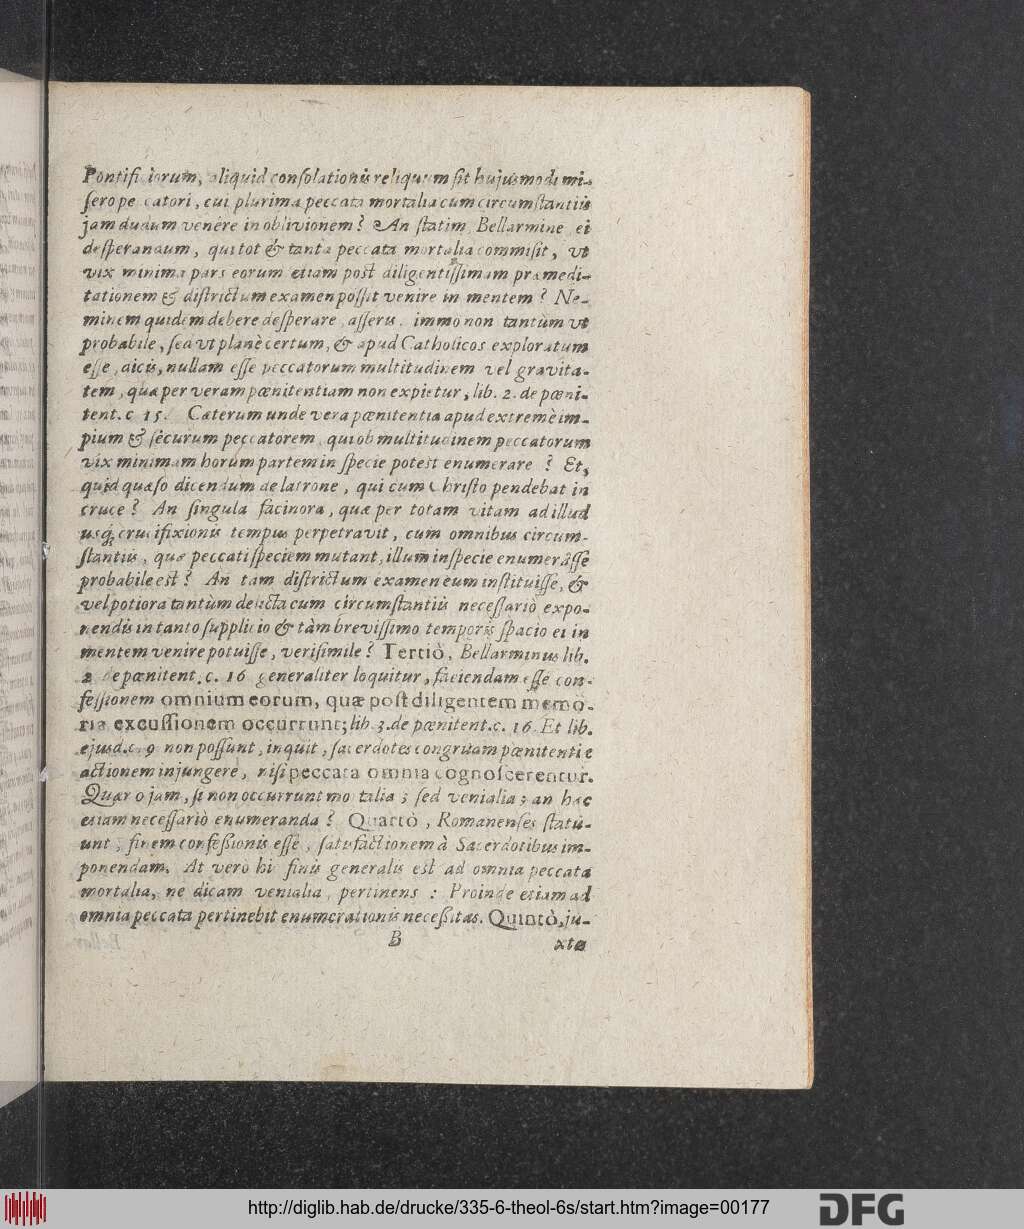 Pontificiorum, aliquid conſolationis reliquum ſit hujusmodi mi-
ſero peccatori, cui plurima peccata mortalia cum circumſtantiis
jam dudum venére in oblivionem? An ſtatim, Bellarmine, ei
deſperandum, qui tot & tanta peccata mortalia commiſit, ut
vix minima pars eorum etiam poſt diligentiſſimam præmedi-
tationem & diſtrictum examen poſſit venire in mentem? Ne-
minem quidem debere deſperare, aſſeris, immo non tantùm ut
probabile, ſed ut planè certum, & apud Catholicos exploratum
eſſe, dicis, nullam eſſe peccatorum multitudinem vel gravita-
tem, quæ per veram pœnitentiam non expietur, lib. 2. de pœni-
tent. c 15. Cæterum unde vera pœnitentia apud extremè im-
pium & ſecurum peccatorem, qui ob multitudinem peccatorum
vix minimam horum partem in ſpecie poteſt enumerare? Et,
quid quæſo dicendum de latrone, qui cum Chriſto pendebat in
cruce? An ſingula facinora, quæ per totam vitam ad illud
usq; crucifixionis tempus perpetravit, cum omnibus circum-
ſtantiis, quæ peccati ſpeciem mutant, illum in ſpecie enumerâſſe
probabile eſt? An tam diſtrictum examen eum inſtituiſſe, &
vel potiora tantùm delicta cum circumſtantiis neceſſariò expo-
nendis in tanto ſupplicio & tàm breviſſimo temporis ſpacio ei in
mentem venire potuiſſe, veriſimile? Tertiò, Bellarminus lib.
2 de pœnitent. c. 16 generaliter loquitur, faciendam eſſe con-
feſſionem omnium eorum, quæ poſt diligentem memo-
ria excuſſionem occurrunt; lib. 3. de pœnitent. c. 16. Et lib.
ejusd. c. 9 non poſſunt, inquit, ſacerdotes congruam pœnitentiæ
actionem injungere, niſi peccata omnia cognoſcerentur.
Quæro jam, ſi non occurrunt mortalia; ſed venialia; an hæc
etiam neceſſariò enumeranda? Quartò, Romanenſes ſtatu-
unt, finem confeßionis eſſe, ſatisfactionem à Sacerdotibus im-
ponendam. At vero hic finis generalis eſt ad omnia peccata
mortalia, ne dicam venialia, pertinens: Proinde etiam ad
omnia peccata pertinebit enumerationis neceßitas. Quintò, ju-
B xta
http://diglib.hab.de/drucke/335-6-theol-6s/start.htm?image=00177
DFG